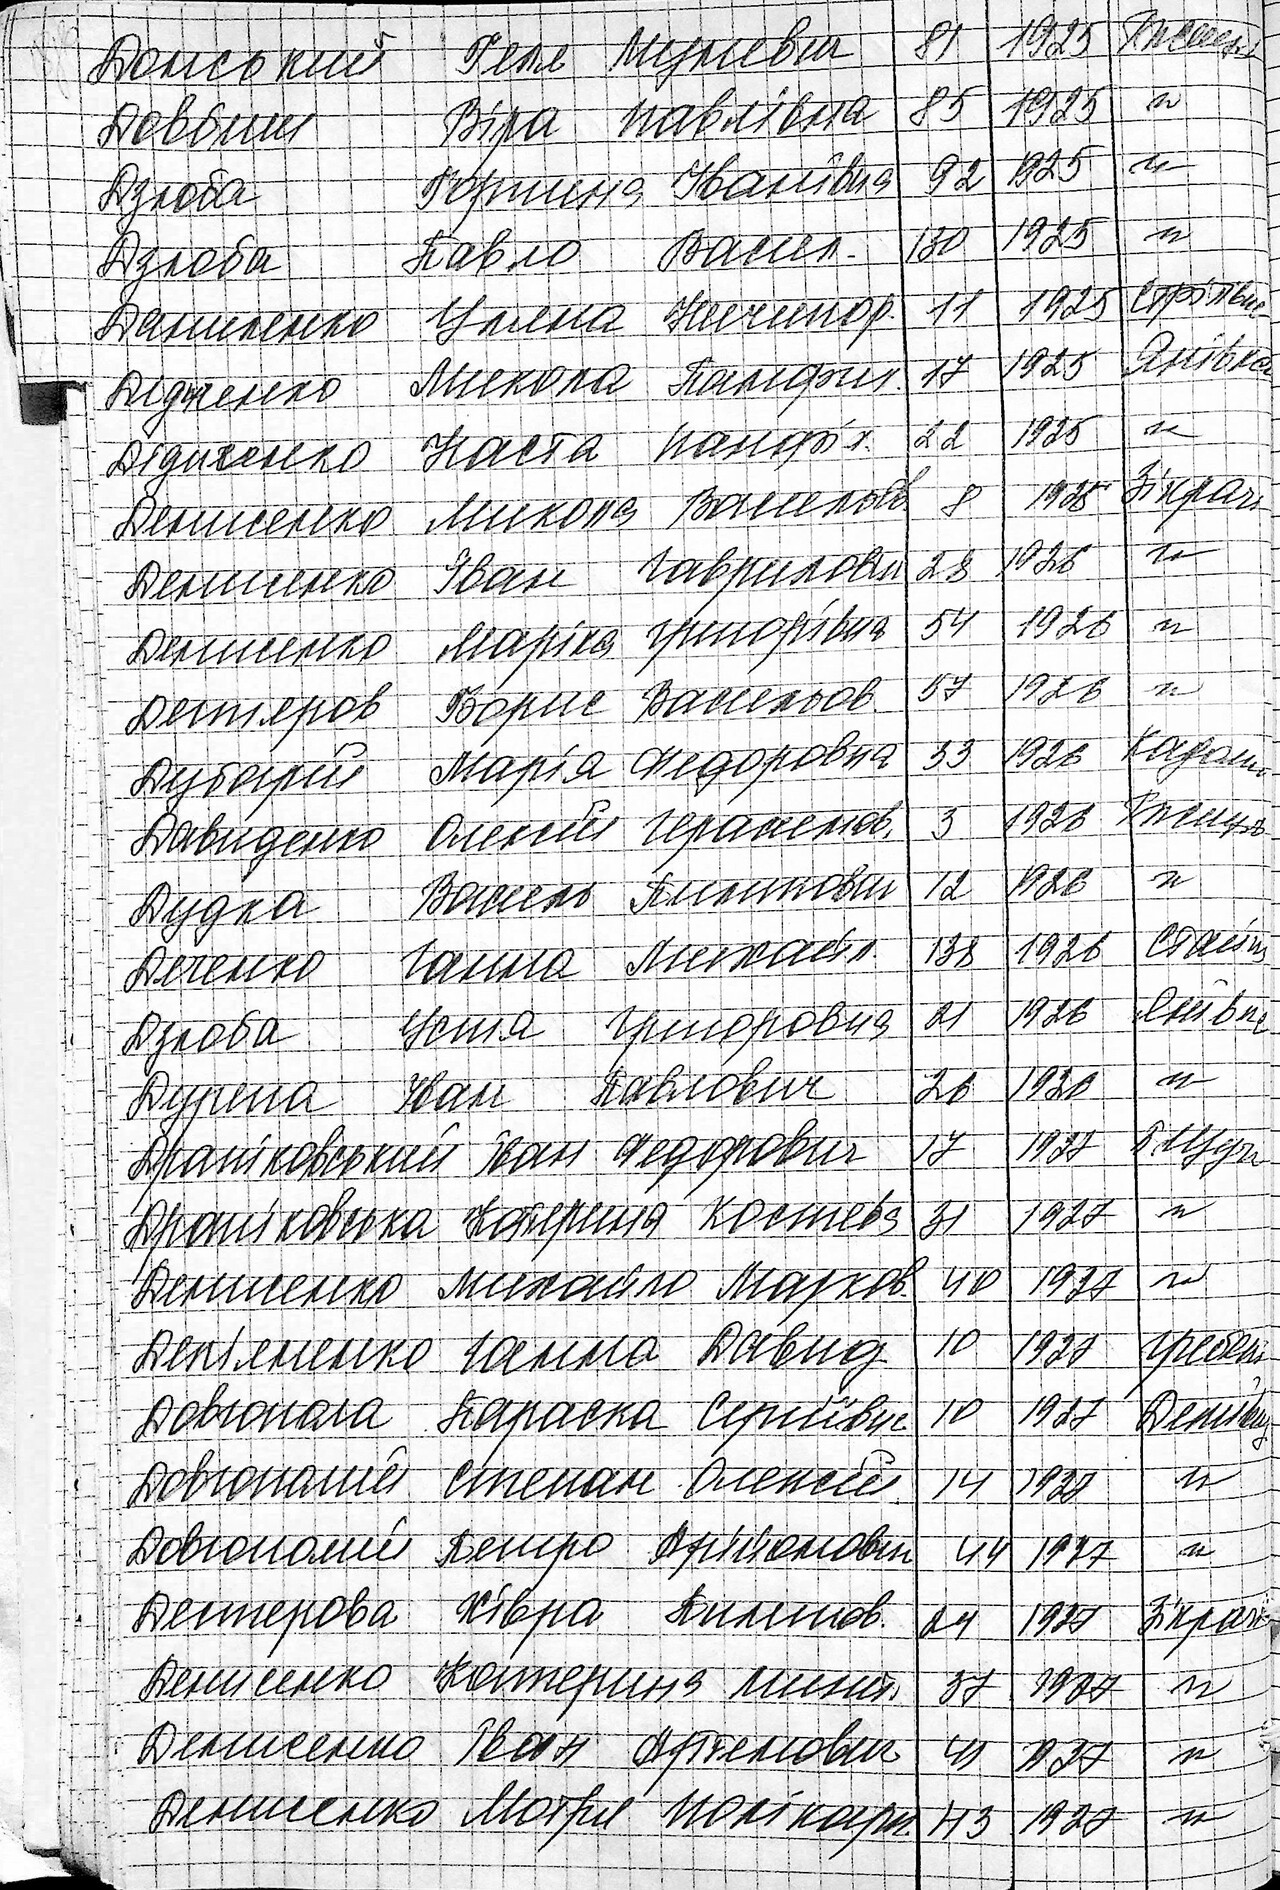 Донський Геля Мусиєвич 81 1925 Ржищів
Довбиш Віра Павлівна 85 1925 "
Дзюба Горпина Іванівна 92 1925 "
Дзюба Павло Васил. 130 1925 "
Даниленко Уляна Ничипор. 11 1925 Стрітівка
Дідченко Микола Панфил. 17 1925 Янівка
Дідиченко Наста Панфіл. 22 1925 "
Денисенко Микола Васильов 8 1926 Зікрачі
Денисенко Іван Гаврилович 28 1926 "
Денисенко Маріка Григорівна 54 1926 "
Дегтяров Борис Васильов 57 1926 "
Дубарий Марія Федоровна 33 1926
Давиденко Олексій Герасимов. 3 1926 Ржищів
Дудка Василь Пилипович 12 1926 "
Дяченко Ганна Михайл. 138 1926 Стайки
Дзюба Устя Григоровна 21 1926 Янівка
Дурепа Іван Павлович 26 1926 "
Драніковський Іван Федорович 17 1927
Драніковська Катерина Костєва 31 1927 "
Денисенко Михайло Марков. 40 1927 "
Дем'яненко Ганна Давид 10 1927 Гребені
Довгопола Параска Сергіївна 10 1927
Довгополий Степан Олексій 14 1927 "
Довгополий Петро 44 1927 "
Дегтерова Хівря Пилипов. 24 1927 Зікрачі
Денисенко Катерина Микит. 37 1927 "
Денисенко Іван Артемович 41 1927 "
Денисенко Мотря Полікарп. 43 1927 "